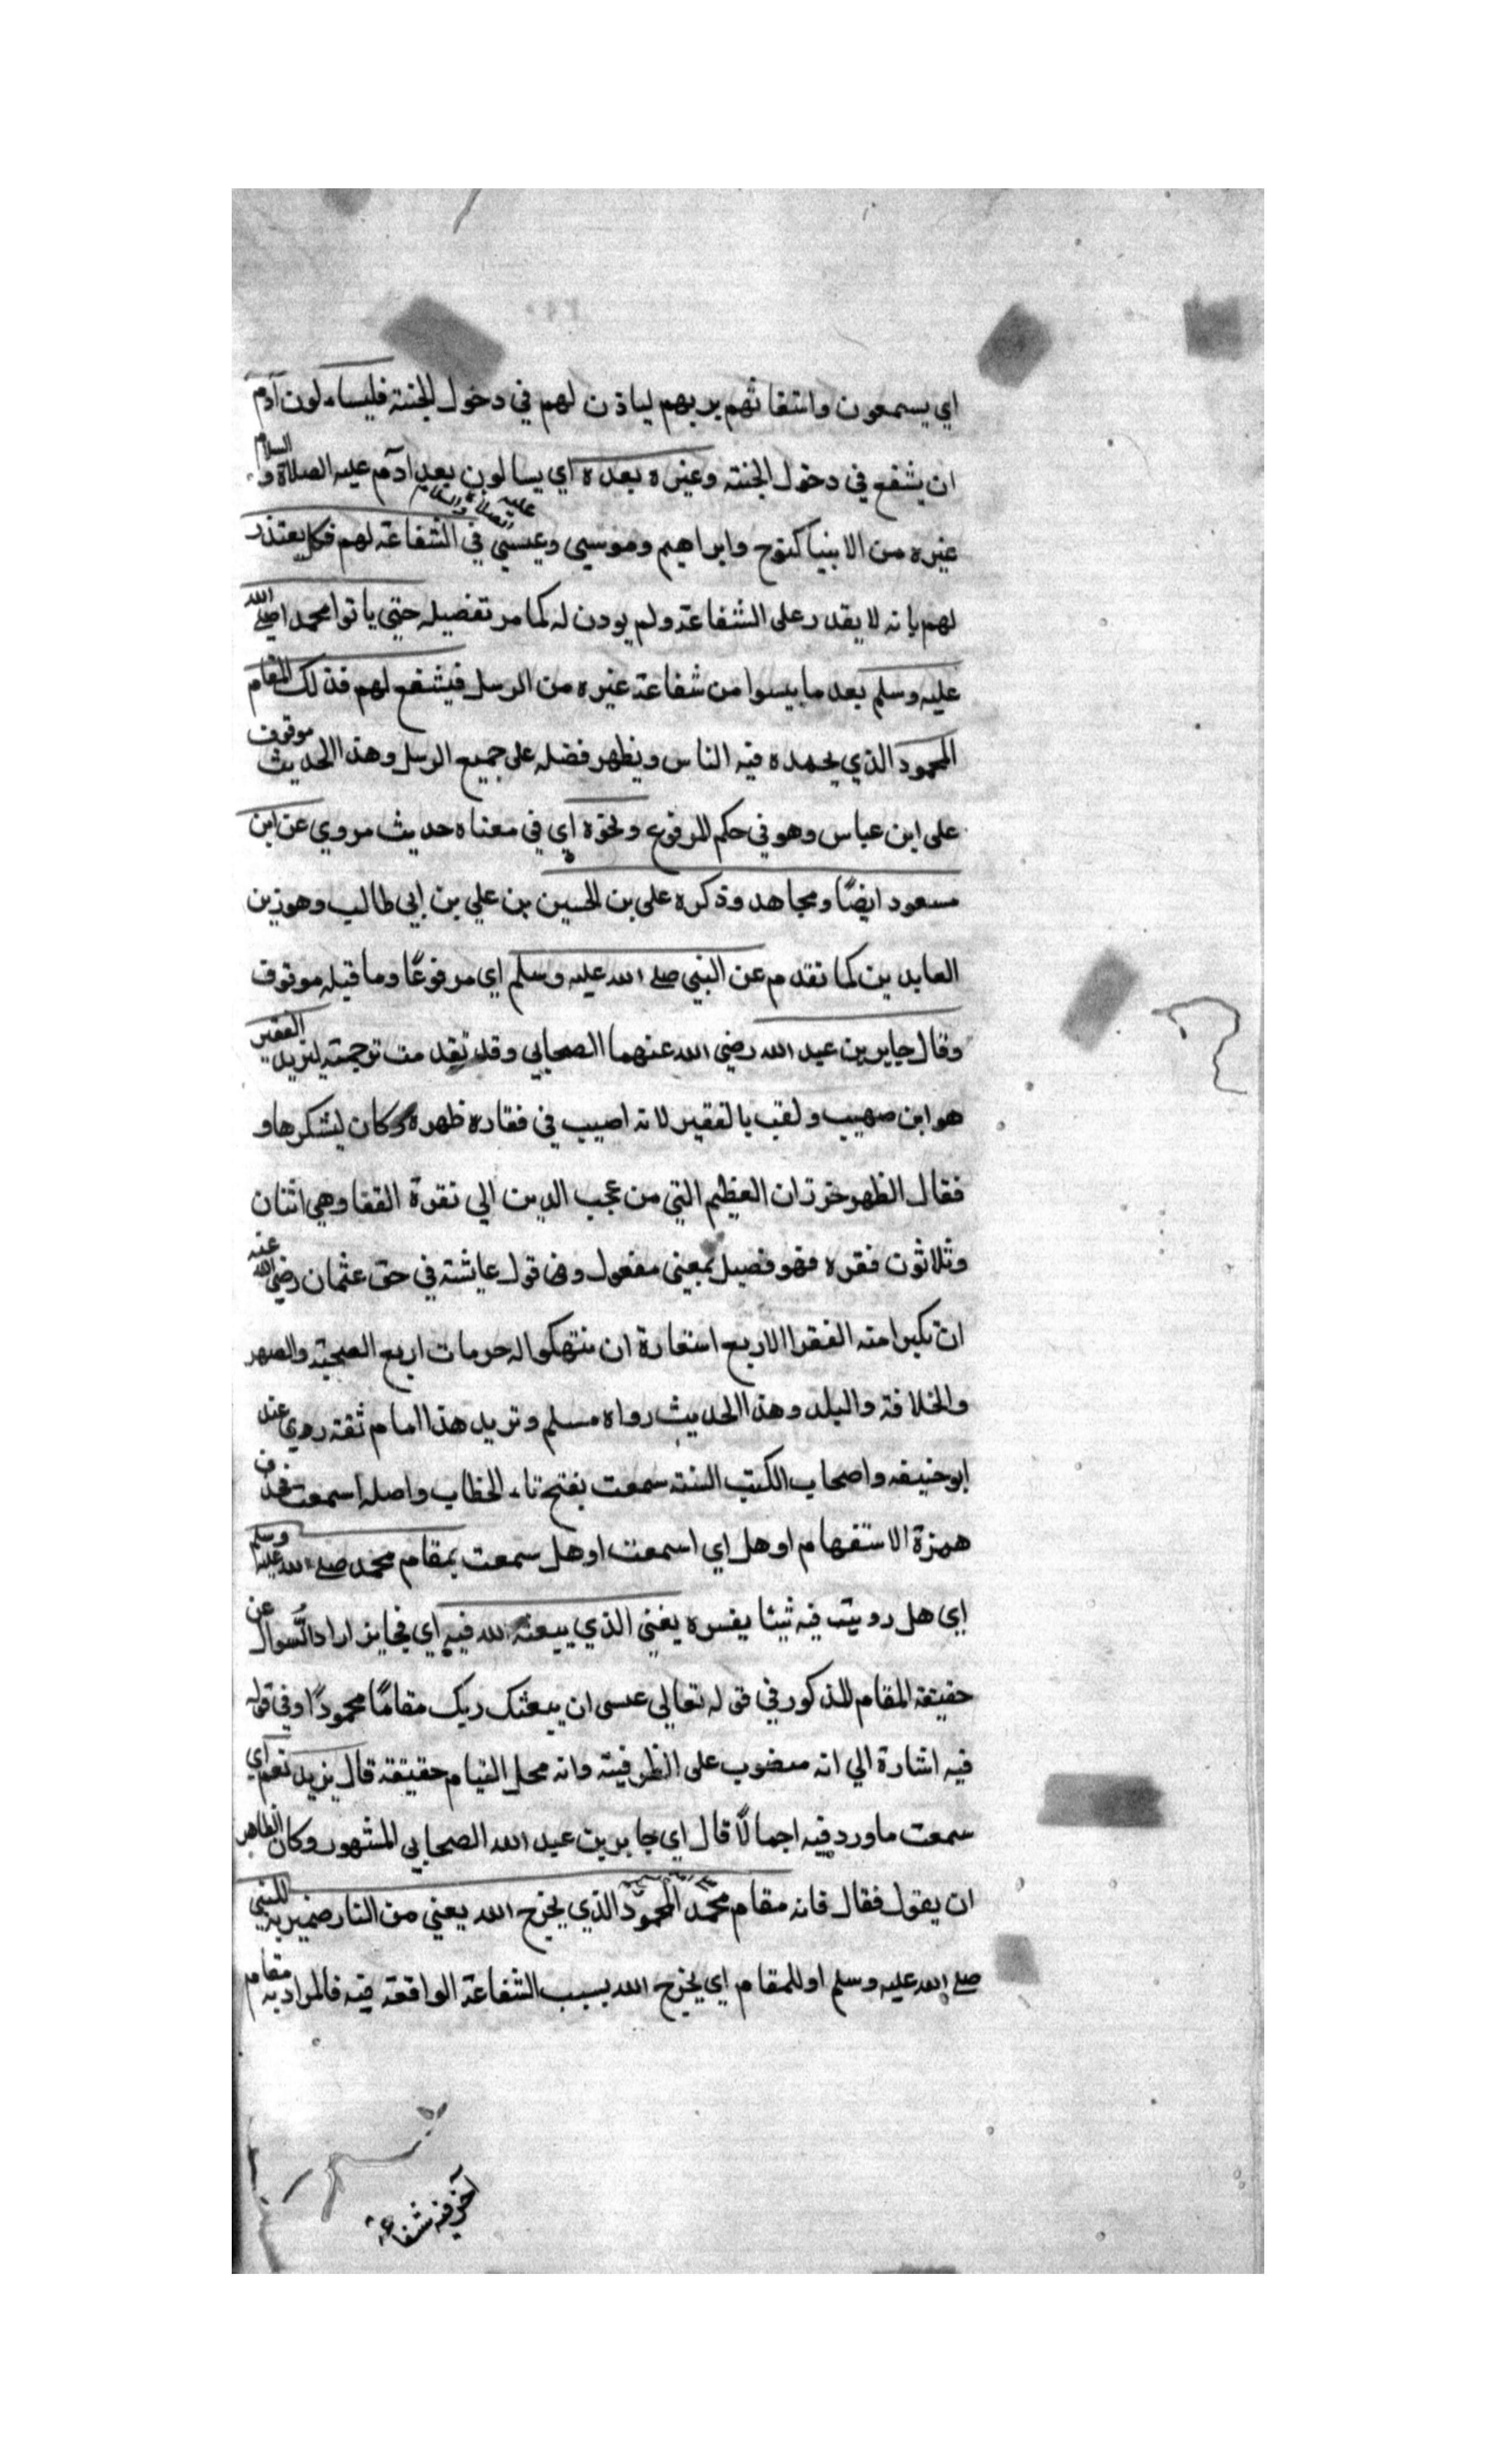 اي يسمعون واستغاثهم بربهم لياذن لهم في دخول الجنة فليساءلون آدم
ان يشفع في دخول الجنة وغيره بعده اي يسالون بعد ادم عليه الصلاة والسلام
غيره من الانبيا كنوح وابراهيم وموسي وعيسي عليه الصلاة والسلام في الشفاعة لهم فكل يعتذر
لهم بانه لا يقدر على الشفاعة ولم يوذن له كما مر تفصيله حتي ياتوا محمدا صلي الله
عليه وسلم بعد ما ييسوا من شفاعة غيره من الرسل فيشفع لهم فذلك المقام
المحمود الذي يحمده فيه الناس ويظهر فضله على جميع الرسل وهذا الحديث موقوف
على ابن عباس وهو في حكم المرفوع ونحوه اي في معناه حديث مروي عن ابن
مسعود ايضًا ومجاهد وذكره على بن الحسين بن علي بن ابي طالب وهو زين
العابدين كما تقدم عن النبي صلي الله عليه وسلم اي مرفوعًا وما قبله موقوف
وقال جابر بن عبد الله رضي الله عنهما الصحابي وقد تقدمت ترجمته ليزيد الفقير
هو ابن صهيب ولقب بالفقير لانه اصيب في فقاره ظهره وكان يشكرها و
فقال الظهر خرزان العظيم التي من عجب الدين الي نقرة القفا وهي اثنان
وثلاثون فقره فهو فصيل بمعني مفعول وفي قول عايشة في حق عثمان رضي الله عنه
ان نكبوا منه الفقرا الاربع استعارة ان ننتهكوا له حرمات اربع الصحبة والصهر
والخلافة والبلد وهذا الحديث رواه مسلم ويزيد هذا امام ثقة روي عنه
ابو حنيفه واصحاب الكتب الستة سمعت بفتح تاء الخطاب واصله اسمعت فحذف
همزة الاستفهام او هل اي اسمعت او هل سمعت بمقام محمد صلي الله عليه وسلم
اي هل رويت فيه شيئا يفسره يغني الذي يبعثه الله فيه اي فجايز اراد السوال عن
حقيقة المقام المذكور في قوله تعالي عسى ان يبعثك ربك مقامًا محمودًا وفي قوله
فيه اشارة الي انه منصوب على الظرفية وانه محل القيام حقيقة قال يزيد نعم اي
سمعت ما ورد فيه اجمالًا قال اي جابر بن عبد الله الصحابي المشهور وكان الظاهر
ان يقول فقال فانه مقام محمد المحمود الذي يخرج الله يعني من النار ضمير به للنبي
صلي الله عليه وسلم او للمقام اي يخرج الله بسبب الشفاعة الواقعة فيه فالمراد به مقام
آخر فيه شفاعة